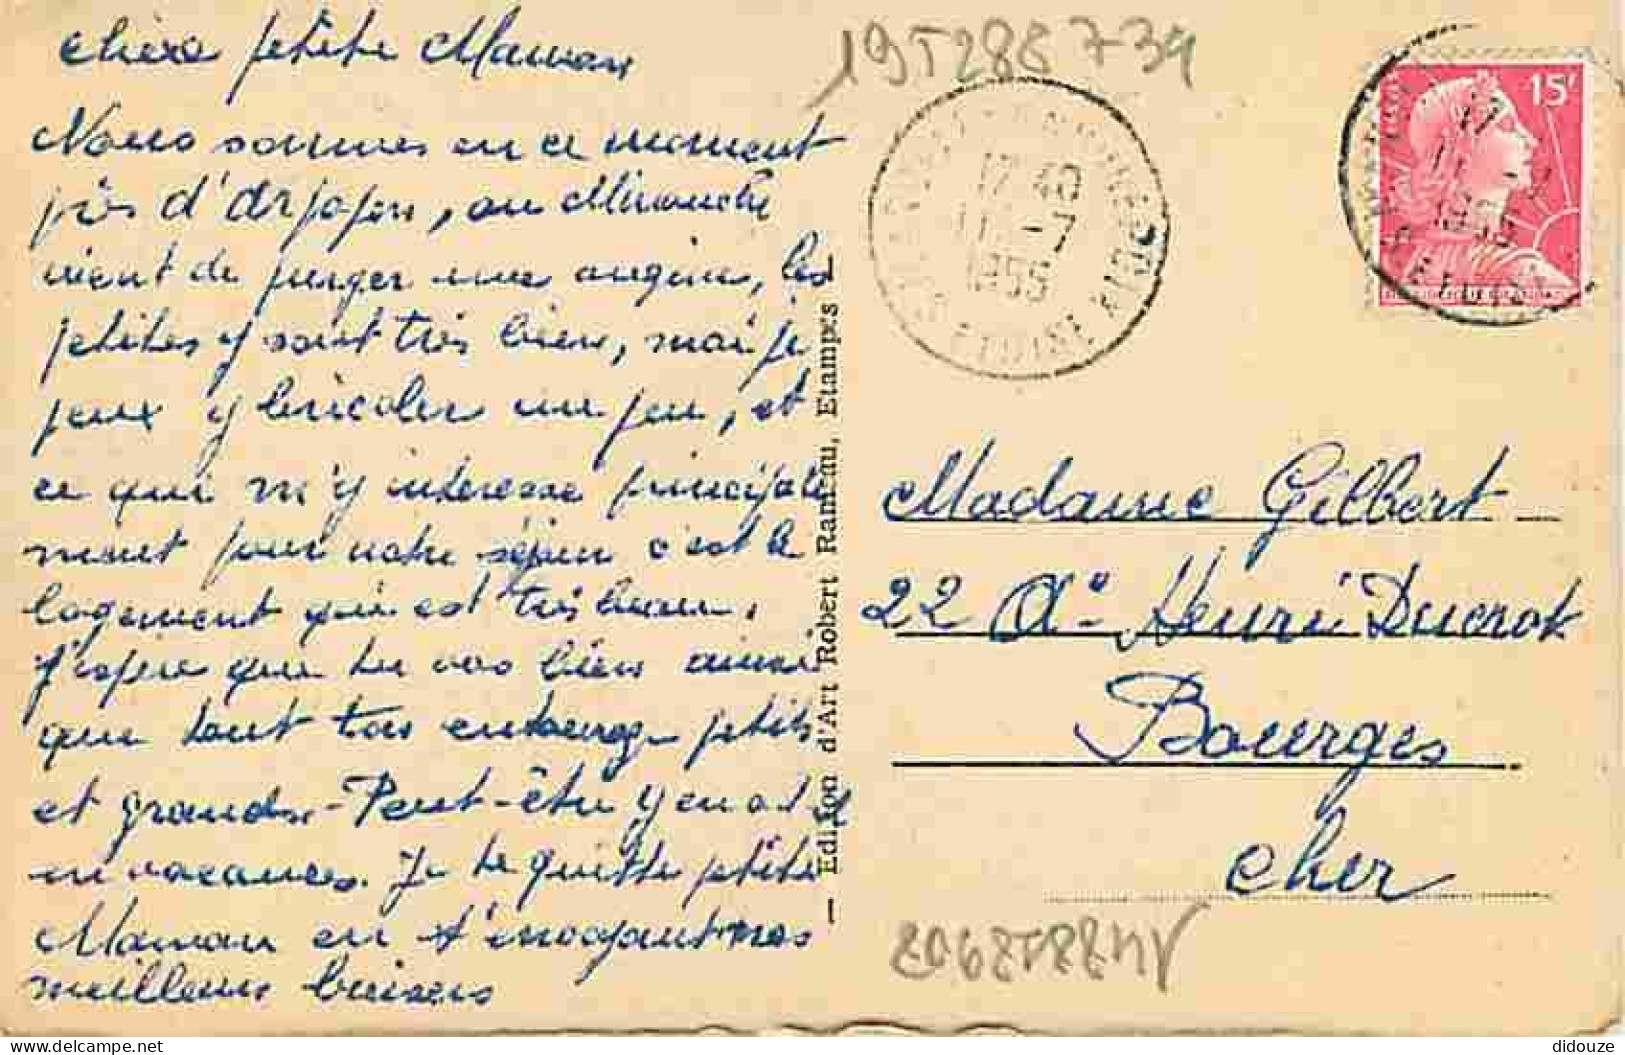 chère petite Maman
Nous sommes en ce moment
près d'Arpajon, au Dimanche
vient de purger une angine, les
petites y sont très bien, mais je
peux y bricoler un peu, et
ce qui m'y intéresse principale
ment pour notre séjour c'est le
logement qui est très beau,
J'espère que tu vas bien ainsi
que tout ton entourage petits
et grands. Peut-être y en a t il
en vacances. Je te quitte petite
Maman en t'envoyant nos
meilleurs baisers
— Edition d'Art Robert Rameau, Etampes
195288734
17 40
11 -7
1955
ETOISE
15F
Madame Gilbert
22 Henri Ducrot
Bourges
Cher
didouze